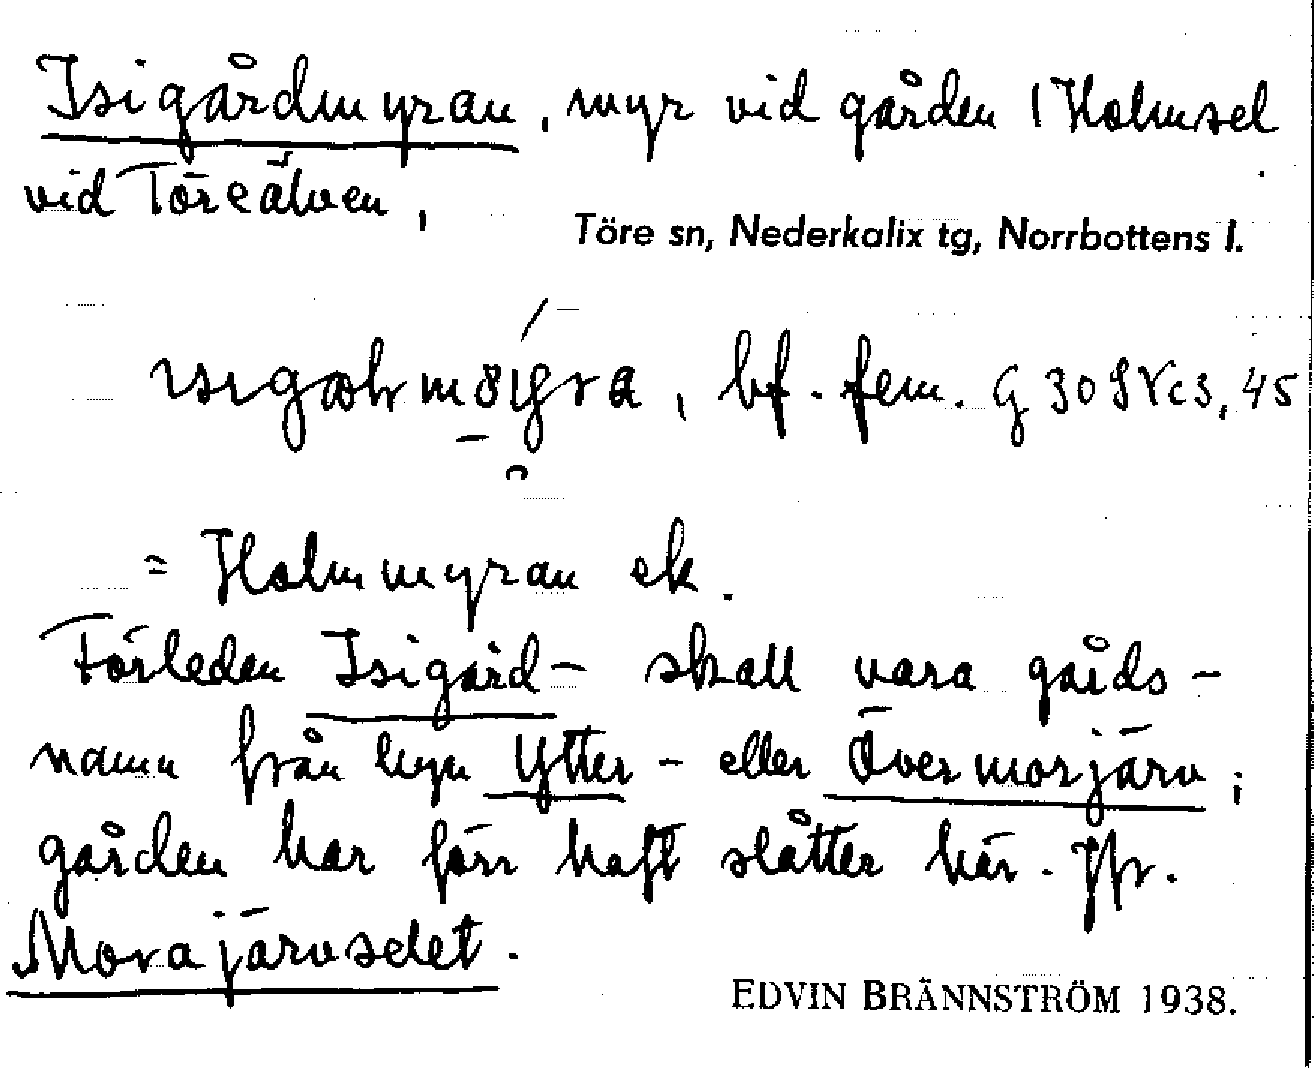 Isigårdmyran, myr vid gården 1 Holmsel
vid Töreälven,
Töre sn, Nederkalix tg, Norrbottens l.
bf. fem.
= Holmmyran ek.
Förleden Isigård- skall vara gårds-
namn från byn Ytter- eller Övermorjärv;
gården har förr haft slåtter här. Jfr.
Morajärvselet.
EDVIN BRÄNNSTRÖM 1938.